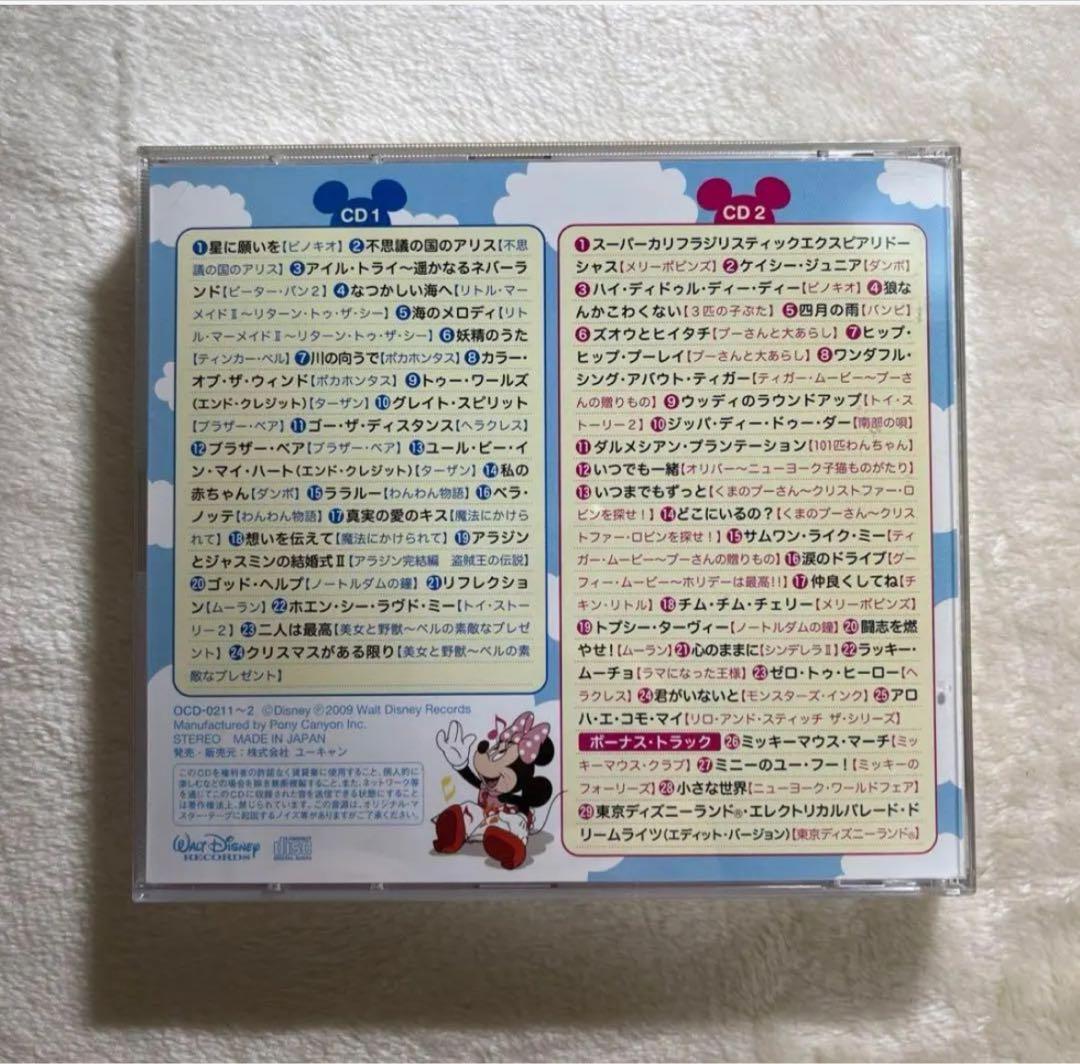 CD 1
❶星に願いを【ピノキオ】❷不思議の国のアリス【不思
議の国のアリス】❸アイル・トライ〜遥かなるネバーラ
ンド【ピーター・パン2】❹なつかしい海へ【リトル・マー
メイドⅡ〜リターン・トゥ・ザ・シー】❺海のメロディ【リト
ル・マーメイドⅡ〜リターン・トゥ・ザ・シー】❻妖精のうた
【ティンカー・ベル】❼川の向うで【ポカホンタス】❽カラー・
オブ・ザ・ウィンド【ポカホンタス】❾トゥー・ワールズ
(エンド・クレジット)【ターザン】❿グレイト・スピリット
【ブラザー・ベア】⓫ゴー・ザ・ディスタンス【ヘラクレス】
⓬ブラザー・ベア【ブラザー・ベア】⓭ユール・ビー・イ
ン・マイ・ハート(エンド・クレジット)【ターザン】⓮私の
赤ちゃん【ダンボ】⓯ララルー【わんわん物語】⓰ベラ・
ノッテ【わんわん物語】⓱真実の愛のキス【魔法にかけら
れて】⓲想いを伝えて【魔法にかけられて】⓳アラジン
とジャスミンの結婚式Ⅱ【アラジン完結編　盗賊王の伝説】
⓴ゴッド・ヘルプ【ノートルダムの鐘】㉑リフレクショ
ン【ムーラン】㉒ホエン・シー・ラヴド・ミー【トイ・ストー
リー2】㉓二人は最高【美女と野獣〜ベルの素敵なプレゼ
ント】㉔クリスマスがある限り【美女と野獣〜ベルの素
敵なプレゼント】
OCD-0211〜2 ©Disney ℗2009 Walt Disney Records
Manufactured by Pony Canyon Inc.
STEREO MADE IN JAPAN
発売・販売元：株式会社 ユーキャン
このCDを権利者の許諾なく賃貸業に使用すること、個人的に
楽しむなどの場合を除き無断複製すること、また、ネットワーク等
を通じてこのCDに収録された音を送信できる状態にすること
は著作権法上、禁じられています。この音源は、オリジナル・マ
スター・テープに起因するノイズ等がありますがご了承ください。
WALT DISNEY
RECORDS
COMPACT
disc
DIGITAL AUDIO
CD 2
❶スーパーカリフラジリスティックエクスピアリドー
シャス【メリーポピンズ】❷ケイシー・ジュニア【ダンボ】
❸ハイ・ディドゥル・ディー・ディー【ピノキオ】❹狼な
んかこわくない【3匹の子ぶた】❺四月の雨【バンビ】
❻ズオウとヒイタチ【プーさんと大あらし】❼ヒップ・
ヒップ・プーレイ【プーさんと大あらし】❽ワンダフル・
シング・アバウト・ティガー【ティガー・ムービー〜プーさ
んの贈りもの】❾ウッディのラウンドアップ【トイ・ス
トーリー2】❿ジッパ・ディー・ドゥー・ダー【南部の唄】
⓫ダルメシアン・プランテーション【101匹わんちゃん】
⓬いつでも一緒【オリバー〜ニューヨーク子猫ものがたり】
⓭いつまでもずっと【くまのプーさん〜クリストファー・ロ
ビンを探せ！】⓮どこにいるの？【くまのプーさん〜クリス
トファー・ロビンを探せ！】⓯サムワン・ライク・ミー【ティ
ガー・ムービー〜プーさんの贈りもの】⓰涙のドライブ【グー
フィー・ムービー〜ホリデーは最高!!】⓱仲良くしてね【チ
キン・リトル】⓲チム・チム・チェリー【メリーポピンズ】
⓳トプシー・ターヴィー【ノートルダムの鐘】⓴闘志を燃
やせ！【ムーラン】㉑心のままに【シンデレラⅡ】㉒ラッキー・
ムーチョ【ラマになった王様】㉓ゼロ・トゥ・ヒーロー【ヘ
ラクレス】㉔君がいないと【モンスターズ・インク】㉕アロ
ハ・エ・コモ・マイ【リロ・アンド・スティッチ ザ・シリーズ】
ボーナス・トラック ㉖ミッキーマウス・マーチ【ミッ
キーマウス・クラブ】㉗ミニーのユー・フー！【ミッキーの
フォーリーズ】㉘小さな世界【ニューヨーク・ワールドフェア】
㉙東京ディズニーランド®・エレクトリカルパレード・ド
リームライツ(エディット・バージョン)【東京ディズニーランド®】